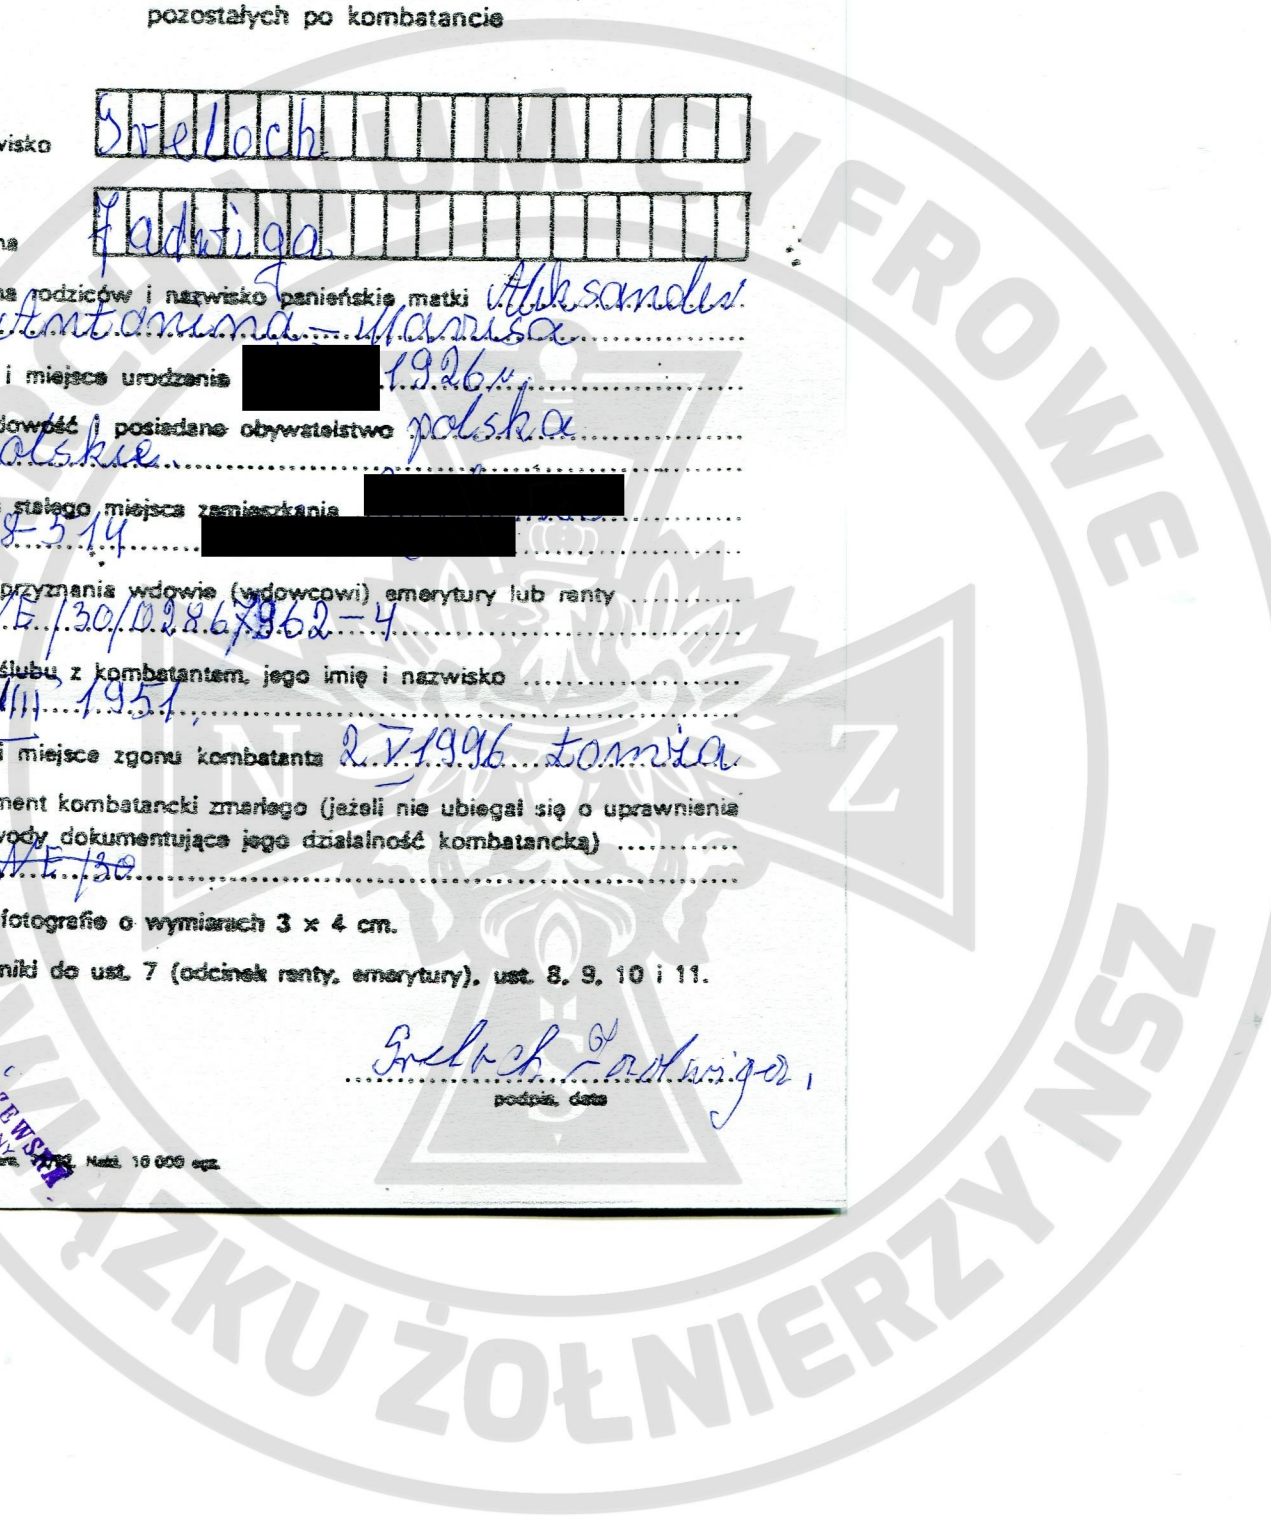 pozostałych po kombatancie
wisko Greloch
na Jadwiga
na rodziców i nazwisko panieńskie matki Aleksander
Antonina - Marisa
i miejsce urodzenia 1926 r,
dowość i posiadane obywatelstwo polska
olskie
stałego miejsca zamieszkania
8-514
przyznania wdowie (wdowcowi) emerytury lub renty
/E/30/02867962-4
ślubu z kombatantem, jego imię i nazwisko
III 1951,
i miejsce zgonu kombatanta 2.V 1996 Łomża
ment kombatancki zmarłego (jeżeli nie ubiegał się o uprawnienia
wody dokumentujące jego działalność kombatancką)
/E/30
fotografie o wymiarach 3 x 4 cm.
niki do ust. 7 (odcinek renty, emerytury), ust. 8, 9, 10 i 11.
Greloch Jadwiga,
podpis, data
ZEWSKA
NY
Nakł. 10 000 egz.
ARCHIWUM CYFROWE
ZWIĄZKU ŻOŁNIERZY NSZ
N Z
S